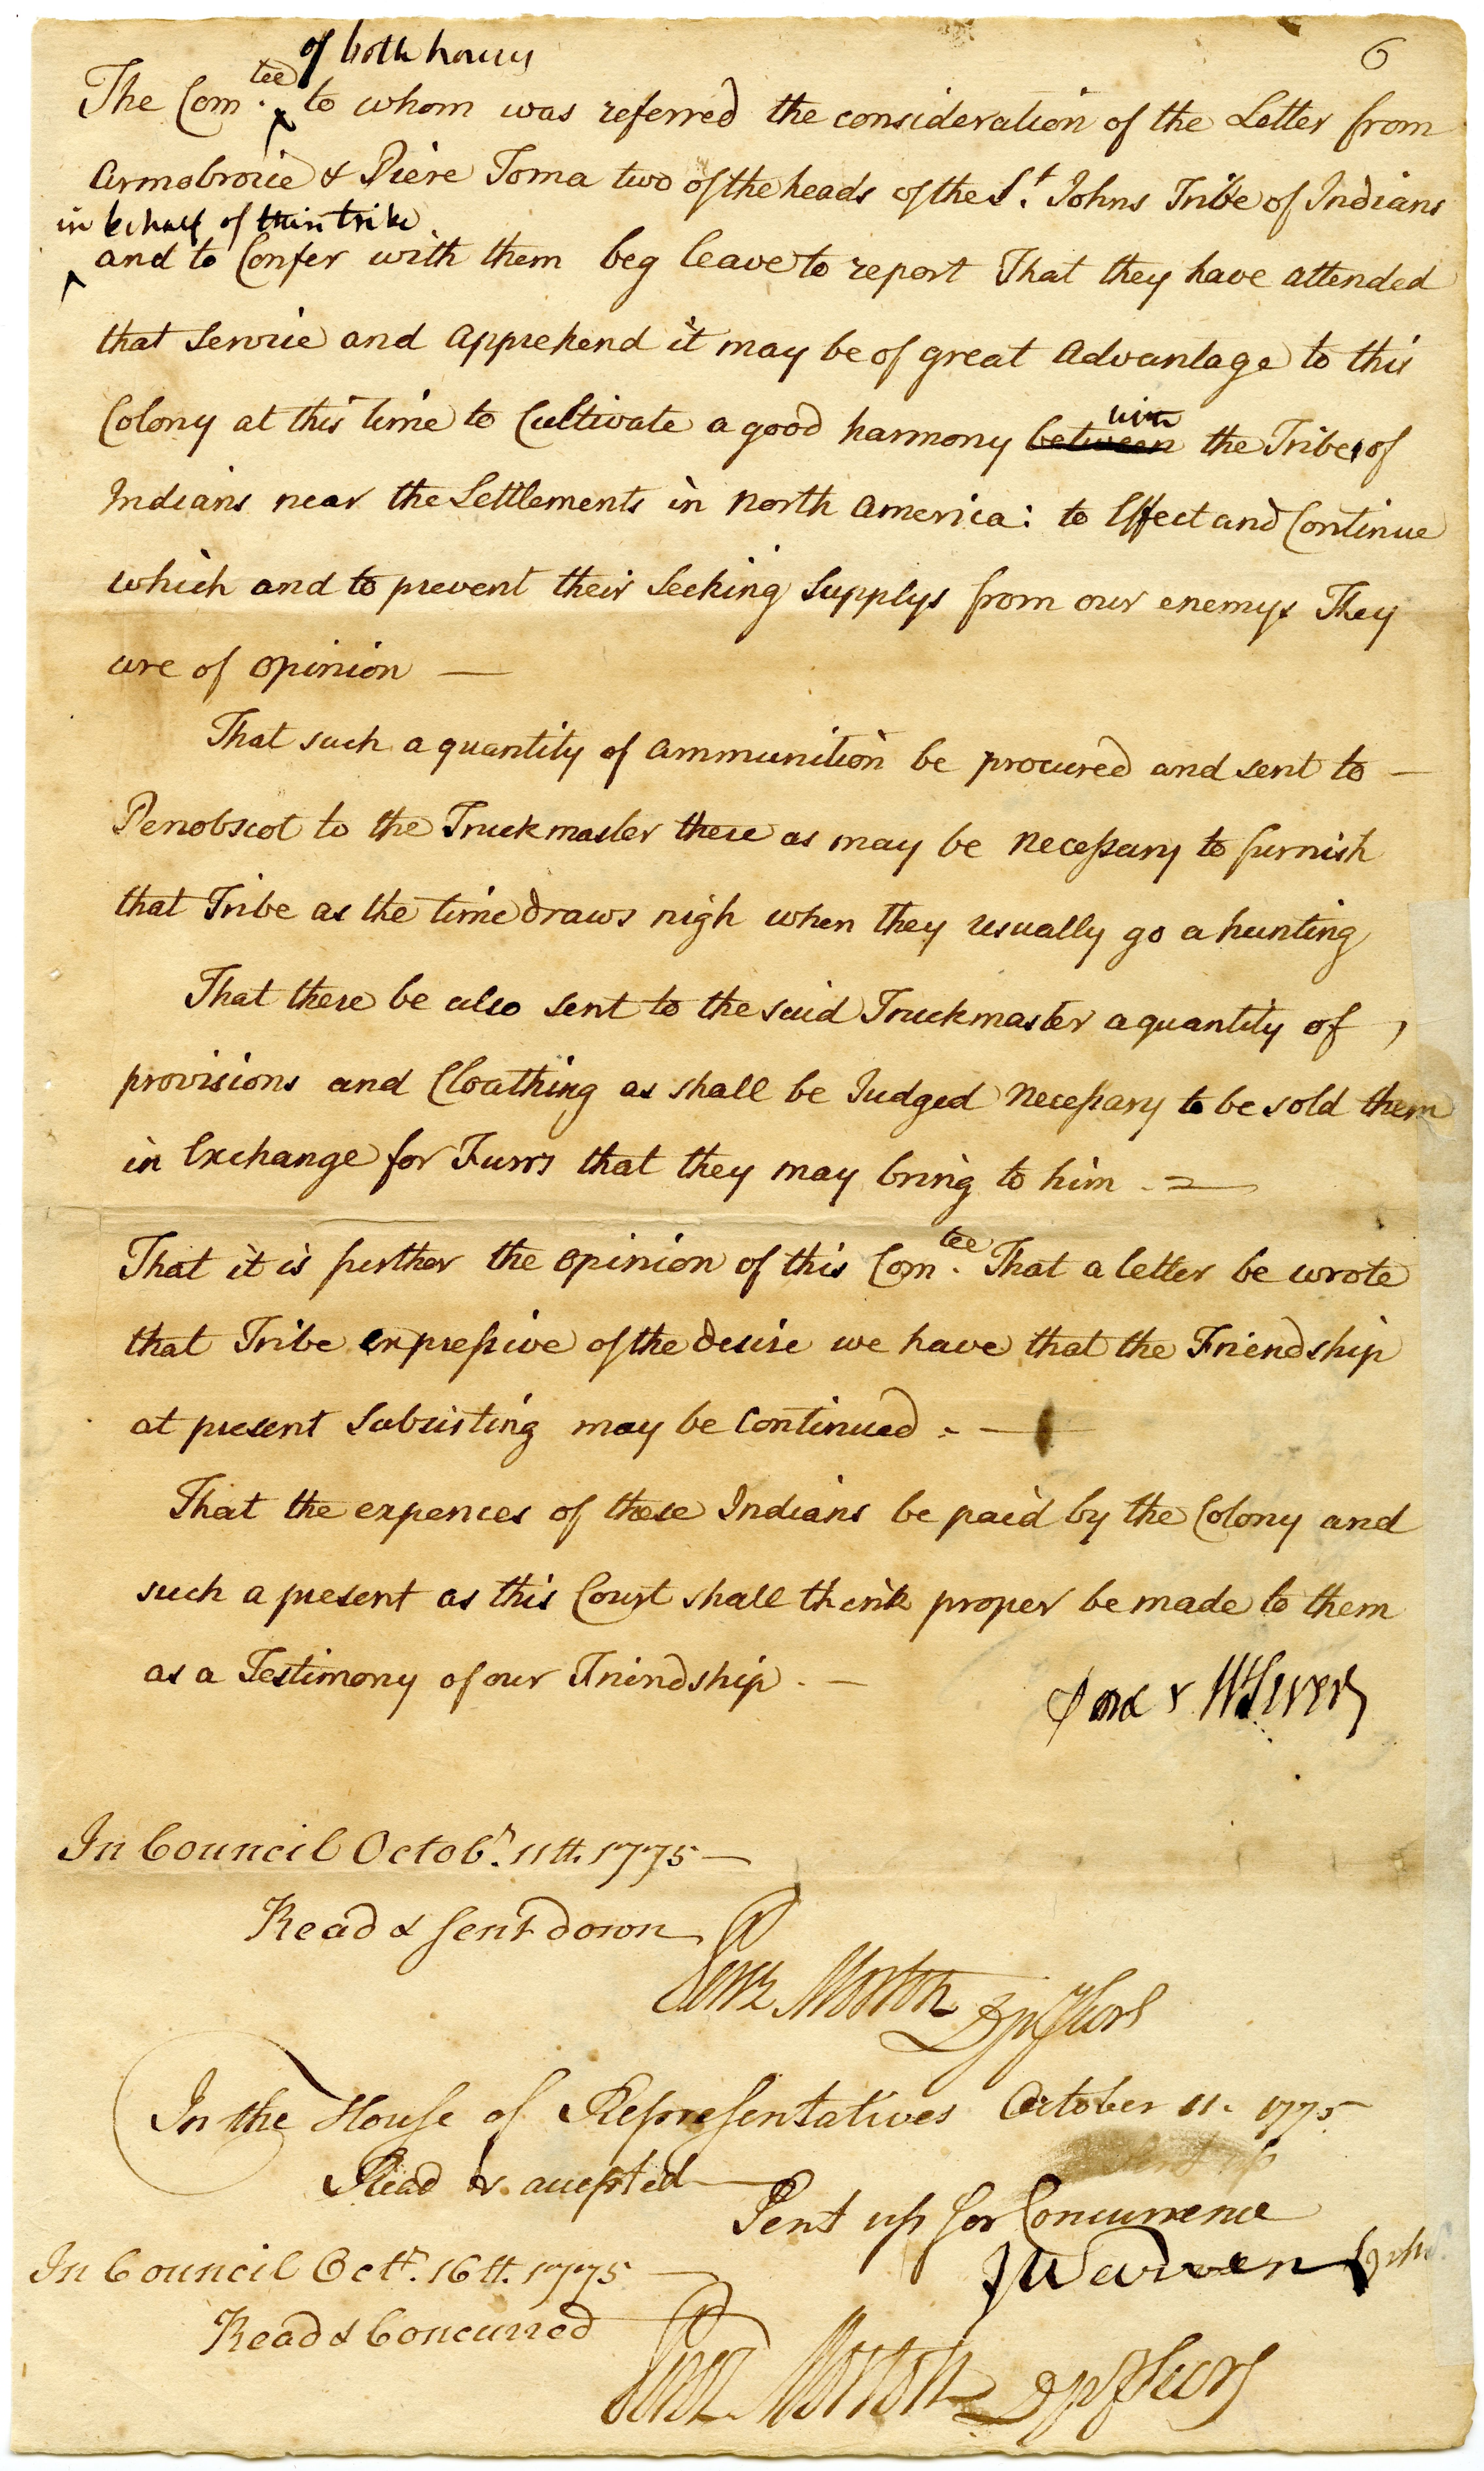 6
of both houses
The Com.tee to whom was referred the consideration of the Letter from
Armobroice & Piere Toma two of the heads of the St. Johns Tribe of Indians
in behalf of their tribe
and to Confer with them beg leave to report That they have attended
that Service and Apprehend it may be of great Advantage to this
Colony at this time to Cultivate a good harmony between with the Tribes of
Indians near the Settlements in North America: to Effect and Continue
which and to prevent their Seeking Supplys from our enemys They
are of opinion —
That such a quantity of Ammunition be procured and sent to —
Penobscot to the Truckmaster there as may be necessary to furnish
that Tribe as the time draws nigh when they usually go a hunting
That there be also sent to the said Truckmaster a quantity of
provisions and Cloathing as shall be Judged necessary to be sold them
in Exchange for Furrs that they may bring to him
That it is further the opinion of this Com.tee That a letter be wrote
that Tribe expressive of the desire we have that the Friendship
at present Subsisting may be Continued. —
That the expences of these Indians be paid by the Colony and
such a present as this Court shall think proper be made to them
as a Testimony of our Friendship. —
In Council Octobr. 11th. 1775 —
Read & sent down
Perez Morton Dpy Secry
In the House of Representatives October 11. 1775
Read & accepted
Sent up
Sent up for Concurrence
J Warren Spkr.
In Council Octr. 16th. 1775
Read & Concurred
Perez Morton Dpy Secry